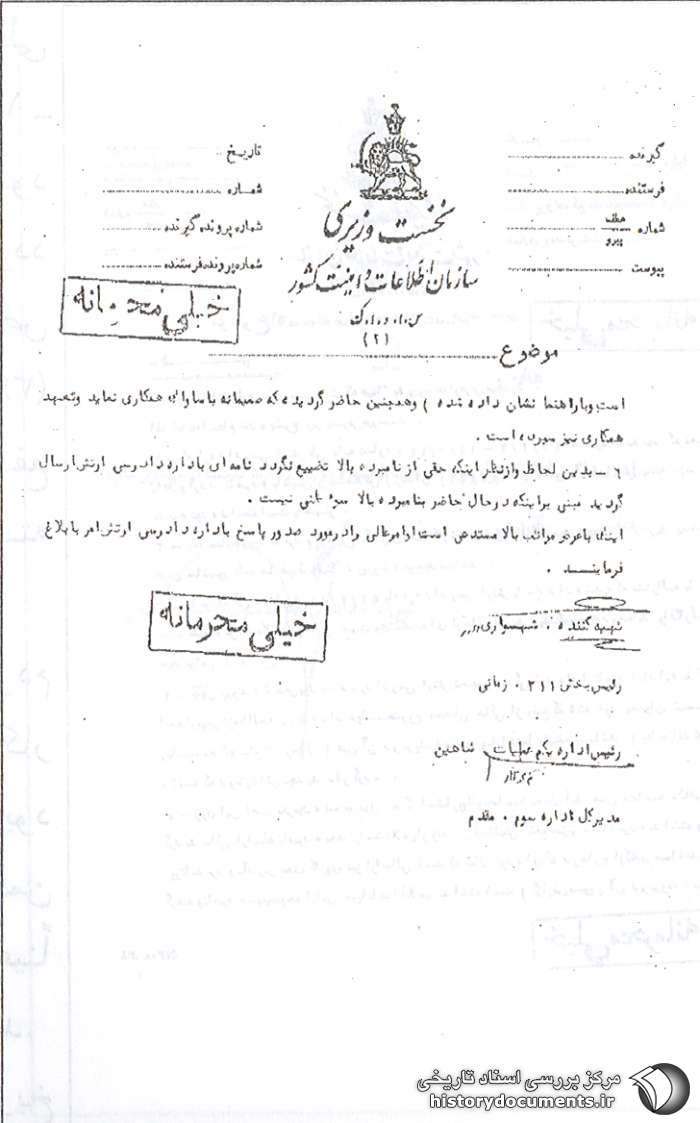 گیرنده
فرستنده
شماره عطف پیرو
پیوست
نخست وزیری
سازمان اطلاعات و امنیت کشور
س.ا.و.ا.ک
(۲)
تاریخ
شماره
شماره پرونده گیرنده
شماره پرونده فرستنده
خیلی محرمانه
موضوع
است وباراهنما نشان داده شده ) وهمچنین حاضر گردیده که صمیمانه باساواک همکاری نماید وتعهد
همکاری نیز سپرده است .
٦ ــ بدین لحاظ وازنظر اینکه حقی از نامبرده بالا تضییع نگردد نامه ای باداره دادرسی ارتش ارسال
گردید مبنی براینکه درحال حاضر بنامبرده بالا سوء ظنی نیست .
اینک باعرض مراتب بالا مستدعی است اوامرعالی رادرمورد صدور پاسخ باداره دادرسی ارتش امر بابلاغ
فرمایند .
خیلی محرمانه
تهیه کننده . شهسواری
رئیس بخش ۲۱۱ . زمانی
رئیس اداره یکم عملیات شاهین
مدیرکل اداره سوم . مقدم
مرکز بررسی اسناد تاریخی
historydocuments.ir